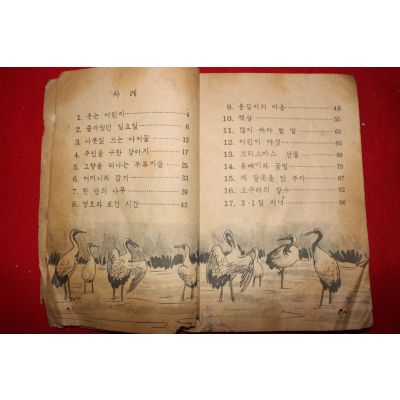 차 례
1. 웃는 어린이 4
2. 즐거웠던 일요일 6
3. 나뭇잎 쓰는 아이들 12
4. 주인을 구한 강아지 17
5. 고향을 떠나는 두루미들 25
6. 어머니와 감기 33
7. 한 단의 나무 39
8. 경호와 보건 시간 42
9. 동길이의 마음 48
10. 책상 55
11. 많이 써야 할 말 62
12. 어린이 야경 65
13. 크리스마스 선물 69
14. 올빼미와 꿀벌 77
15. 제 잘못을 안 부자 87
16. 고구려의 장수 92
17. 3·1절 저녁 96